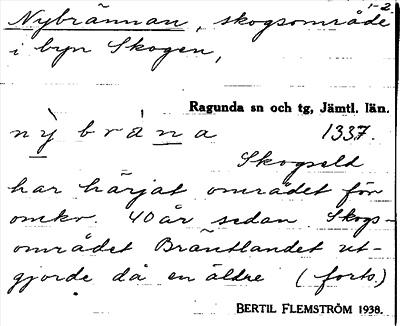 1-2.
Nybrännan, skogsområde
i byn Skogen,
Ragunda sn och tg, Jämtl. län.
nỳ brä̀na 1337.
Skogseld
har härjat området för
omkr. 40 år sedan Skogs-
området Bräntlandet ut-
gjorde då en äldre (forts.)
BERTIL FLEMSTRÖM 1938.